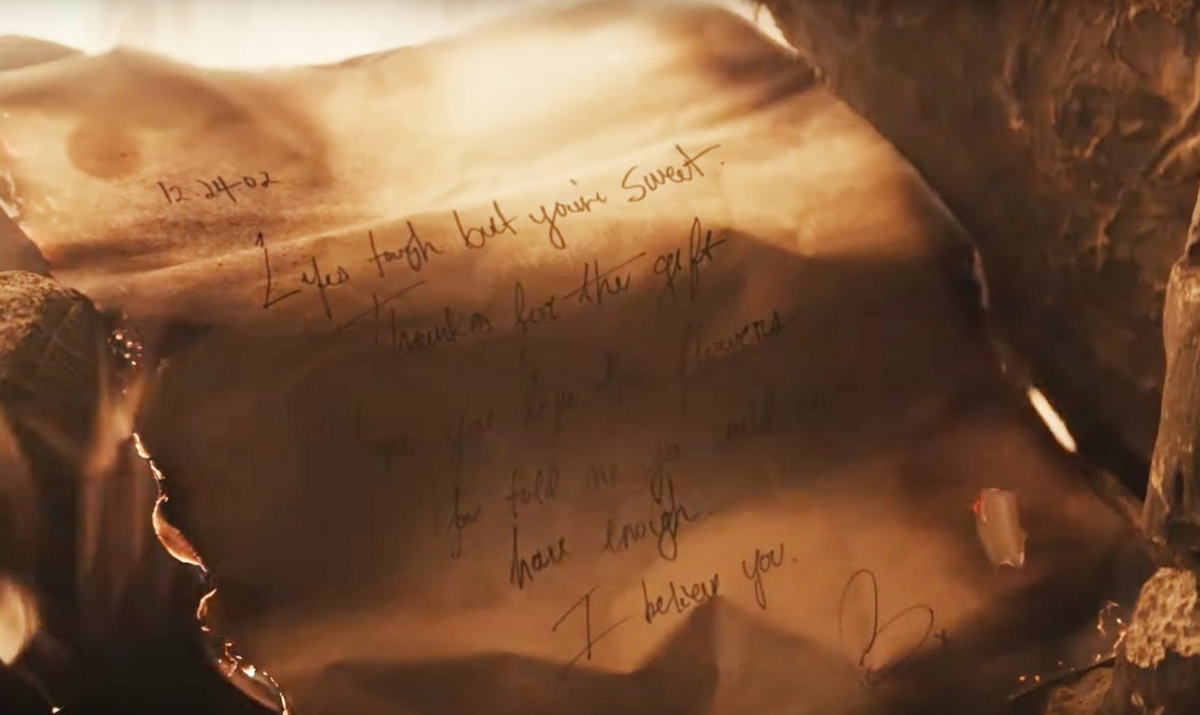 12.24.02
Lifes tough but you're sweet.
Thanks for the gift
you hope the flowers
you told me you could
have enough.
I believe you.
B x